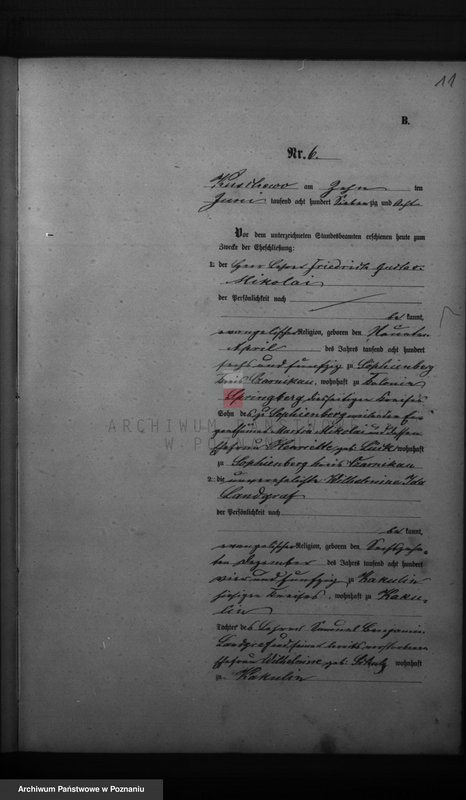 11
B.
Nr. 6.
am Zehn ten
Juni tausend acht hundert Siebenzig und Acht
Vor dem unterzeichneten Standesbeamten erschienen heute zum
Zwecke der Eheschließung:
1. der Lehrer Friedrich Gustav
Nikolai
der Persönlichkeit nach
bekannt,
evangelischer Religion, geboren den Neunten
April des Jahres tausend acht hundert
sechs und fünfzig zu Sophienberg
Kreis Czarnikau, wohnhaft zu Colonie
Springberg diesseitigen Kreises
Sohn des zu Sophienberg
Martin Nikolai und dessen
Ehefrau Henriette geb. Lück wohnhaft
zu Sophienberg Kreis Czarnikau
2. die unverehelichte Wilhelmine Ida
Landgraf
der Persönlichkeit nach
bekannt,
evangelischer Religion, geboren den Sechszehn-
ten Dezember des Jahres tausend acht hundert
vier und fünfzig zu Kakulin
hiesigen Kreises, wohnhaft zu Kaku-
lin
Tochter des Lehrers Samuel Benjamin
Landgraf und seiner bereits verstorbenen
Ehefrau Wilhelmine geb. Schulz wohnhaft
zu Kakulin
ARCHIWUM PAŃSTWOWE
W POZNANIU
Archiwum Państwowe w Poznaniu